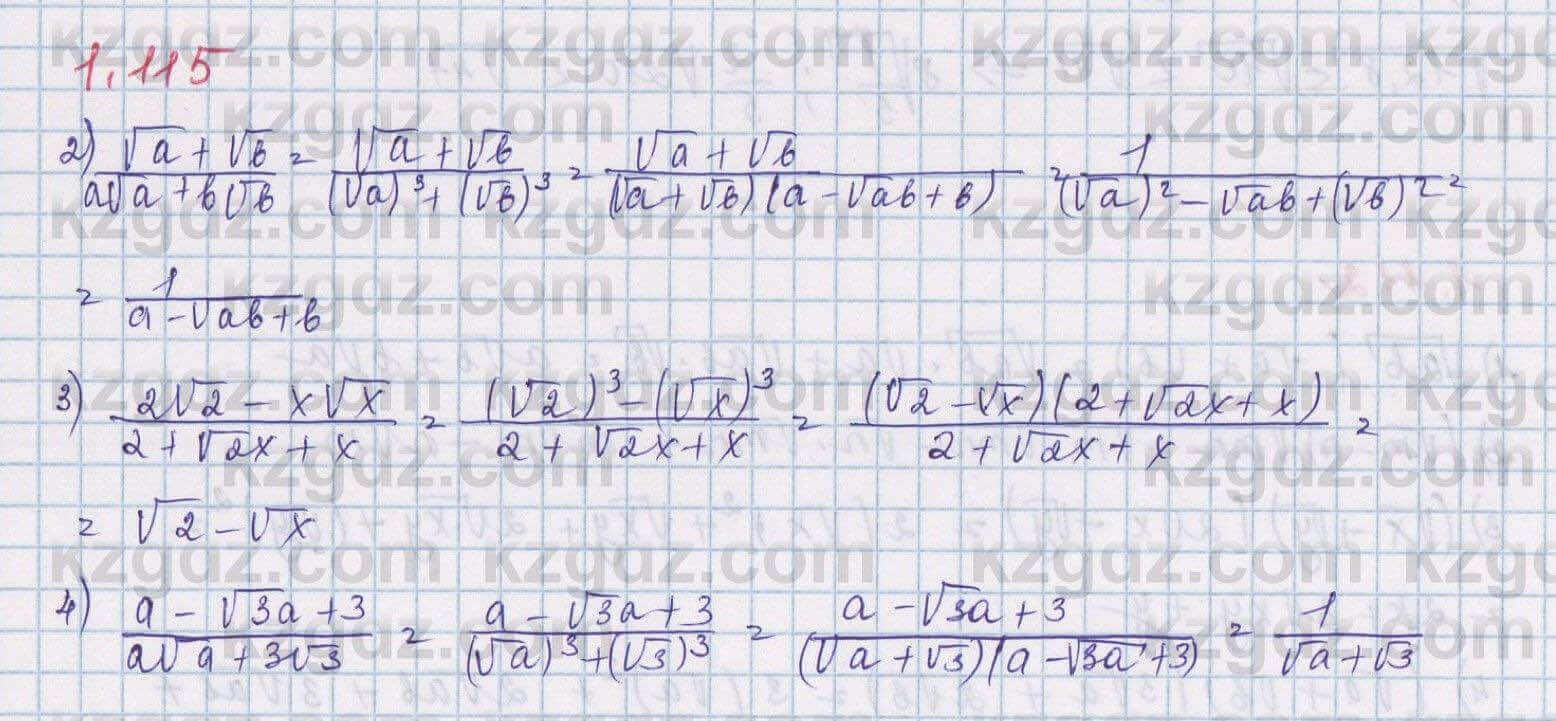 1.115
2) (√a + √b)/(a√a + b√b) = (√a + √b)/((√a)³ + (√b)³) = (√a + √b)/((√a + √b)(a - √ab + b)) = 1/((√a)² - √ab + (√b)²) =
= 1/(a - √ab + b)
3) (2√2 - x√x)/(2 + √2x + x) = ((√2)³ - (√x)³)/(2 + √2x + x) = ((√2 - √x)(2 + √2x + x))/(2 + √2x + x) =
= √2 - √x
4) (a - √3a + 3)/(a√a + 3√3) = (a - √3a + 3)/((√a)³ + (√3)³) = (a - √3a + 3)/((√a + √3)(a - √3a + 3)) = 1/(√a + √3)
kzgdz.com